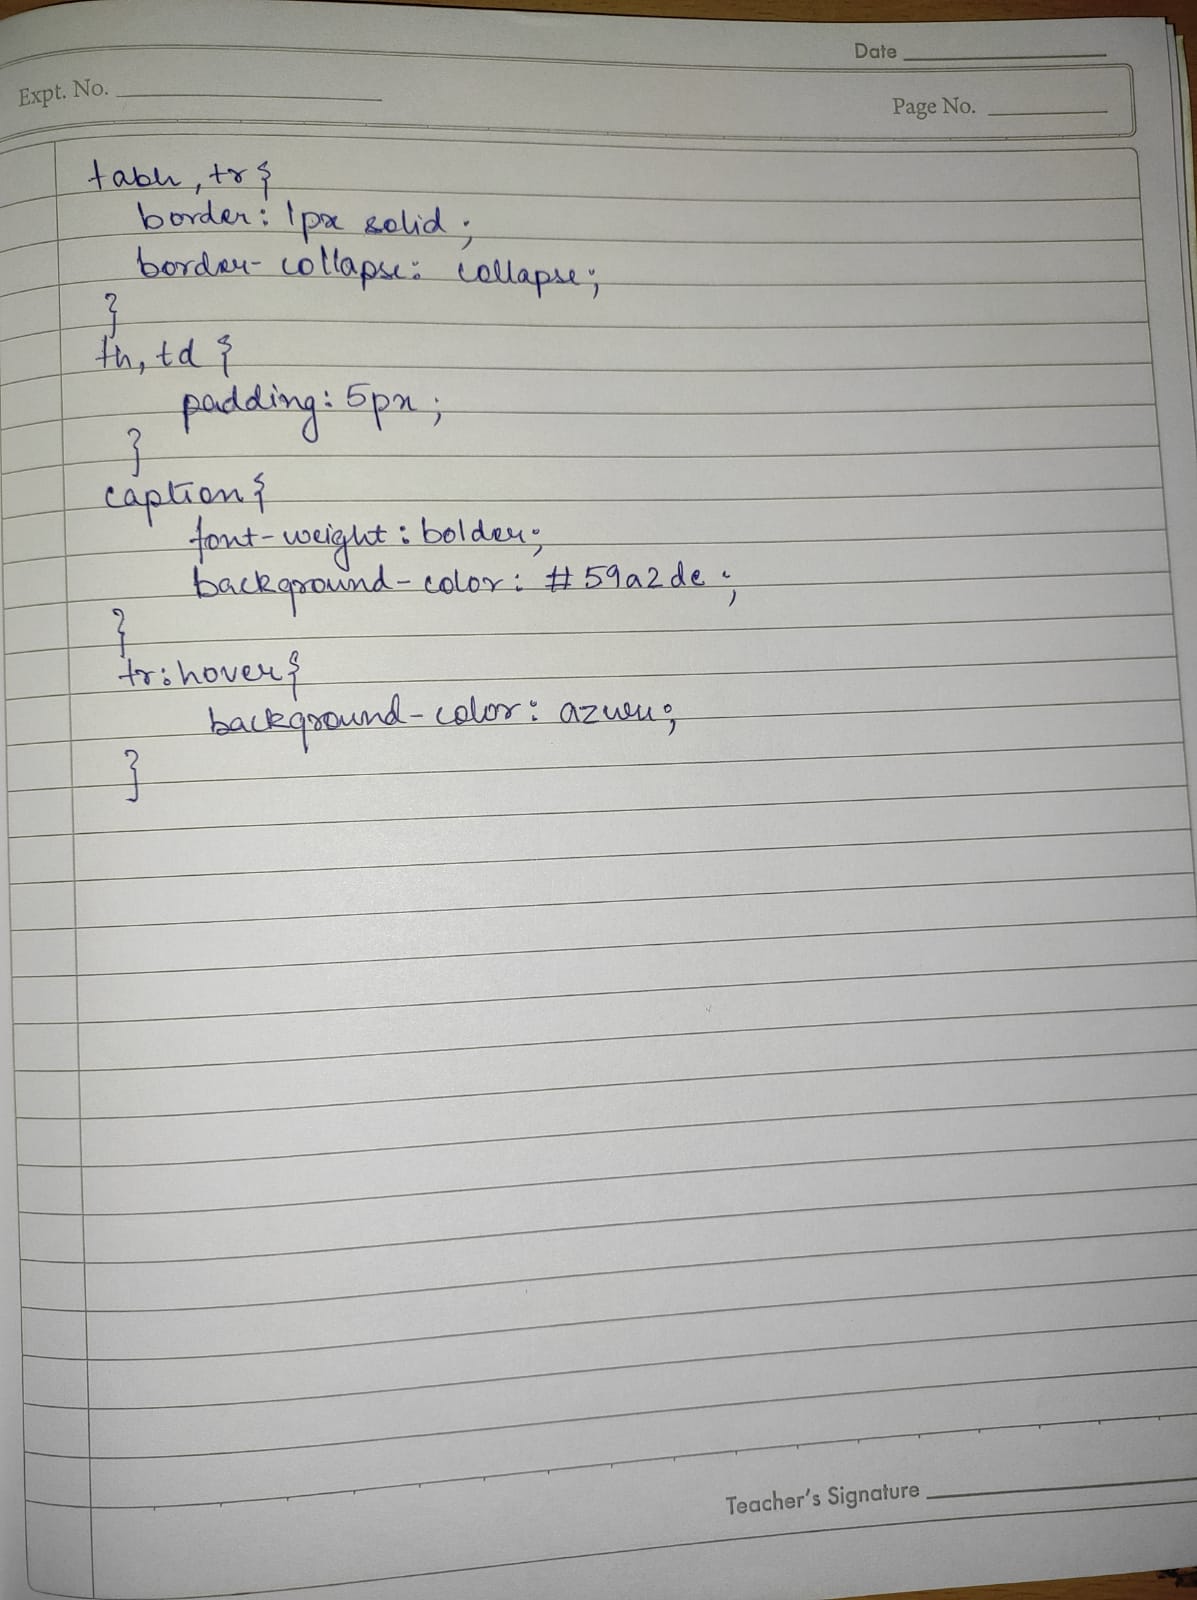 Date
Expt. No.
Page No.
table, tr {
border: 1px solid;
border-collapse: collapse;
}
th, td {
padding: 5px;
}
caption {
font-weight: bolder;
background-color: #59a2de;
}
tr:hover {
background-color: azure;
}
Teacher's Signature